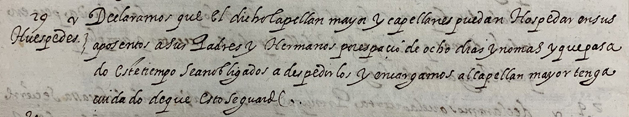 29 Declaramos que El dicho Capellan mayor y capellanes puedan Hospedar en sus
Huespedes. aposentos a sus Padres y Hermanos por espacio de ocho dias y no mas y que pasa
do este tiempo sean obligados a despedirlos y encargamos al capellan mayor tenga
cuidado de que esto se guarde